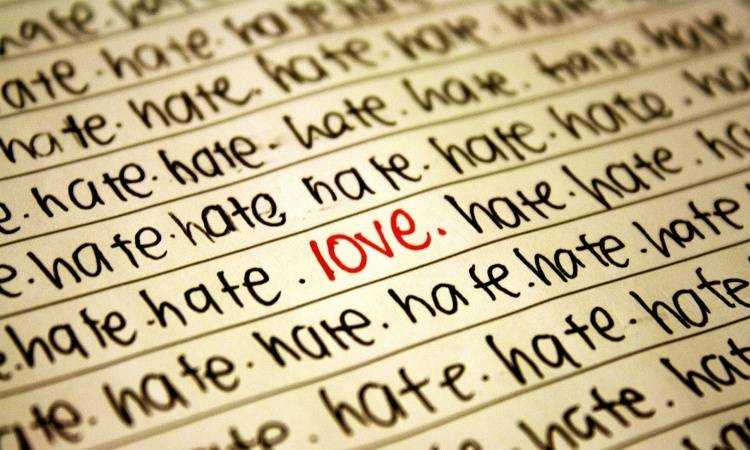 hate.
ate · hate · hate hate
hate · hate. hate · hate · hate
e · hate · hate. hate. hate. hate. hate
e. hate · hate hate. hate. hate . ha
e. hate · hate . love. hate · hate . ha
ate. hate. hate. hate. hate. hate
hate . hate. hate. hate
hate. hat